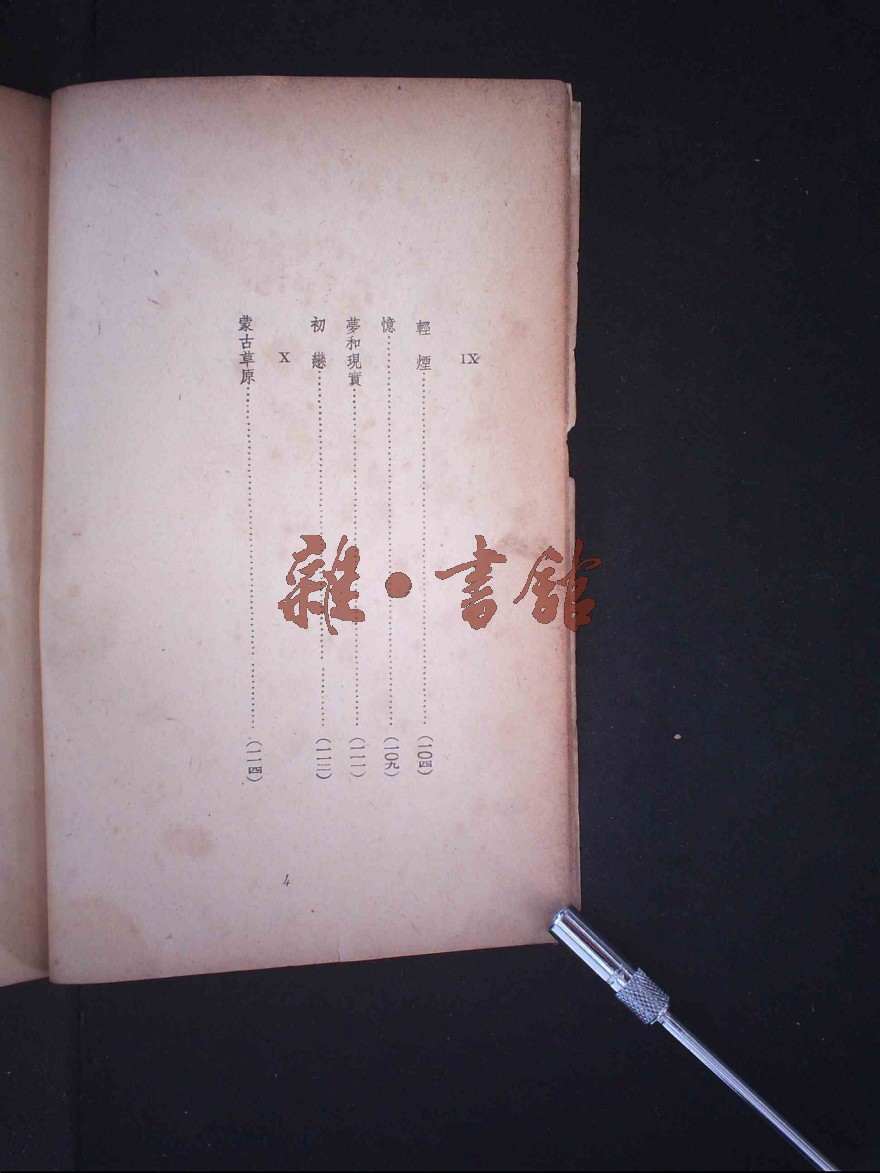 IX
輕煙……(一〇四)
憶……(一〇九)
夢和現實……(一一一)
初戀……(一一三)
X
蒙古草原……(一一四)
4
雜·書館